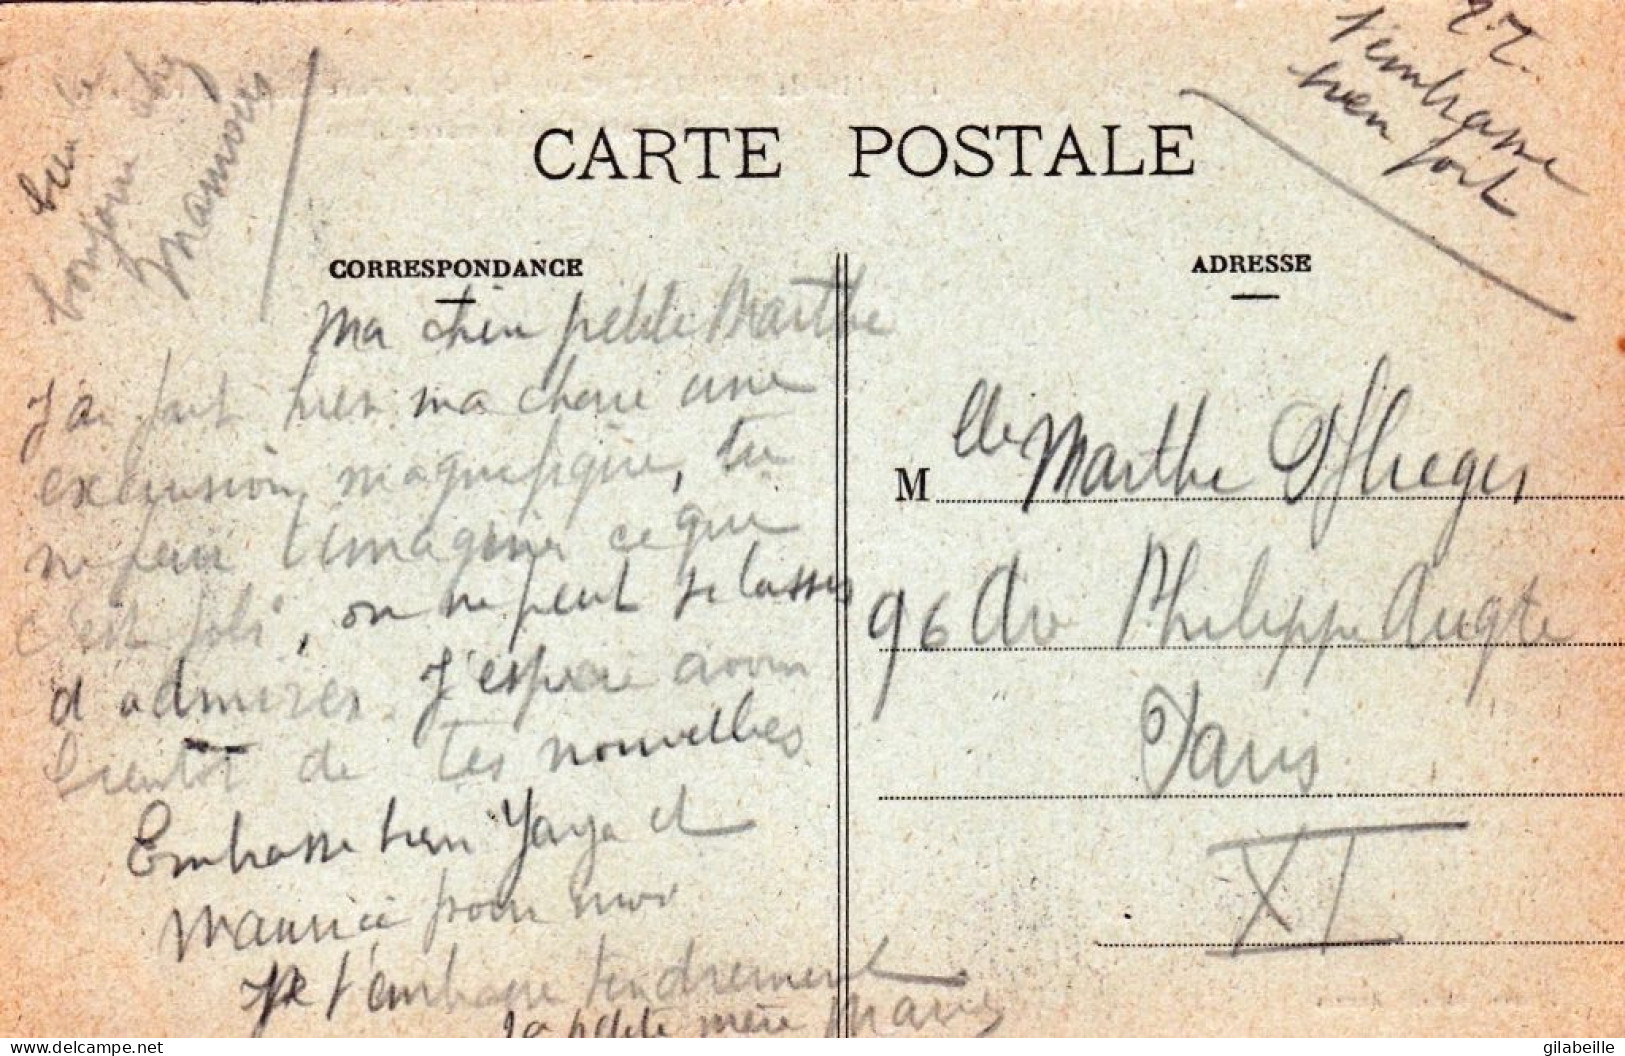 bien le
bonjour chez
Mamours
ZZ.
t'embrasse
bien fort.
CARTE POSTALE
CORRESPONDANCE
ADRESSE
Ma chère petite Marthe
J'ai fait hier ma chère une
excursion magnifique, tu
ne peux t'imaginer ce que
c'est joli, on ne peut se lasser
d'admirer. J'espère avoir
bientôt de tes nouvelles
Embrasse bien Yaya et
Maurice pour moi
Je t'embrasse tendrement
Ta petite mère
M lle Marthe
96 Av Philippe Augte
Paris
XI
delcampe.net
gilabeille